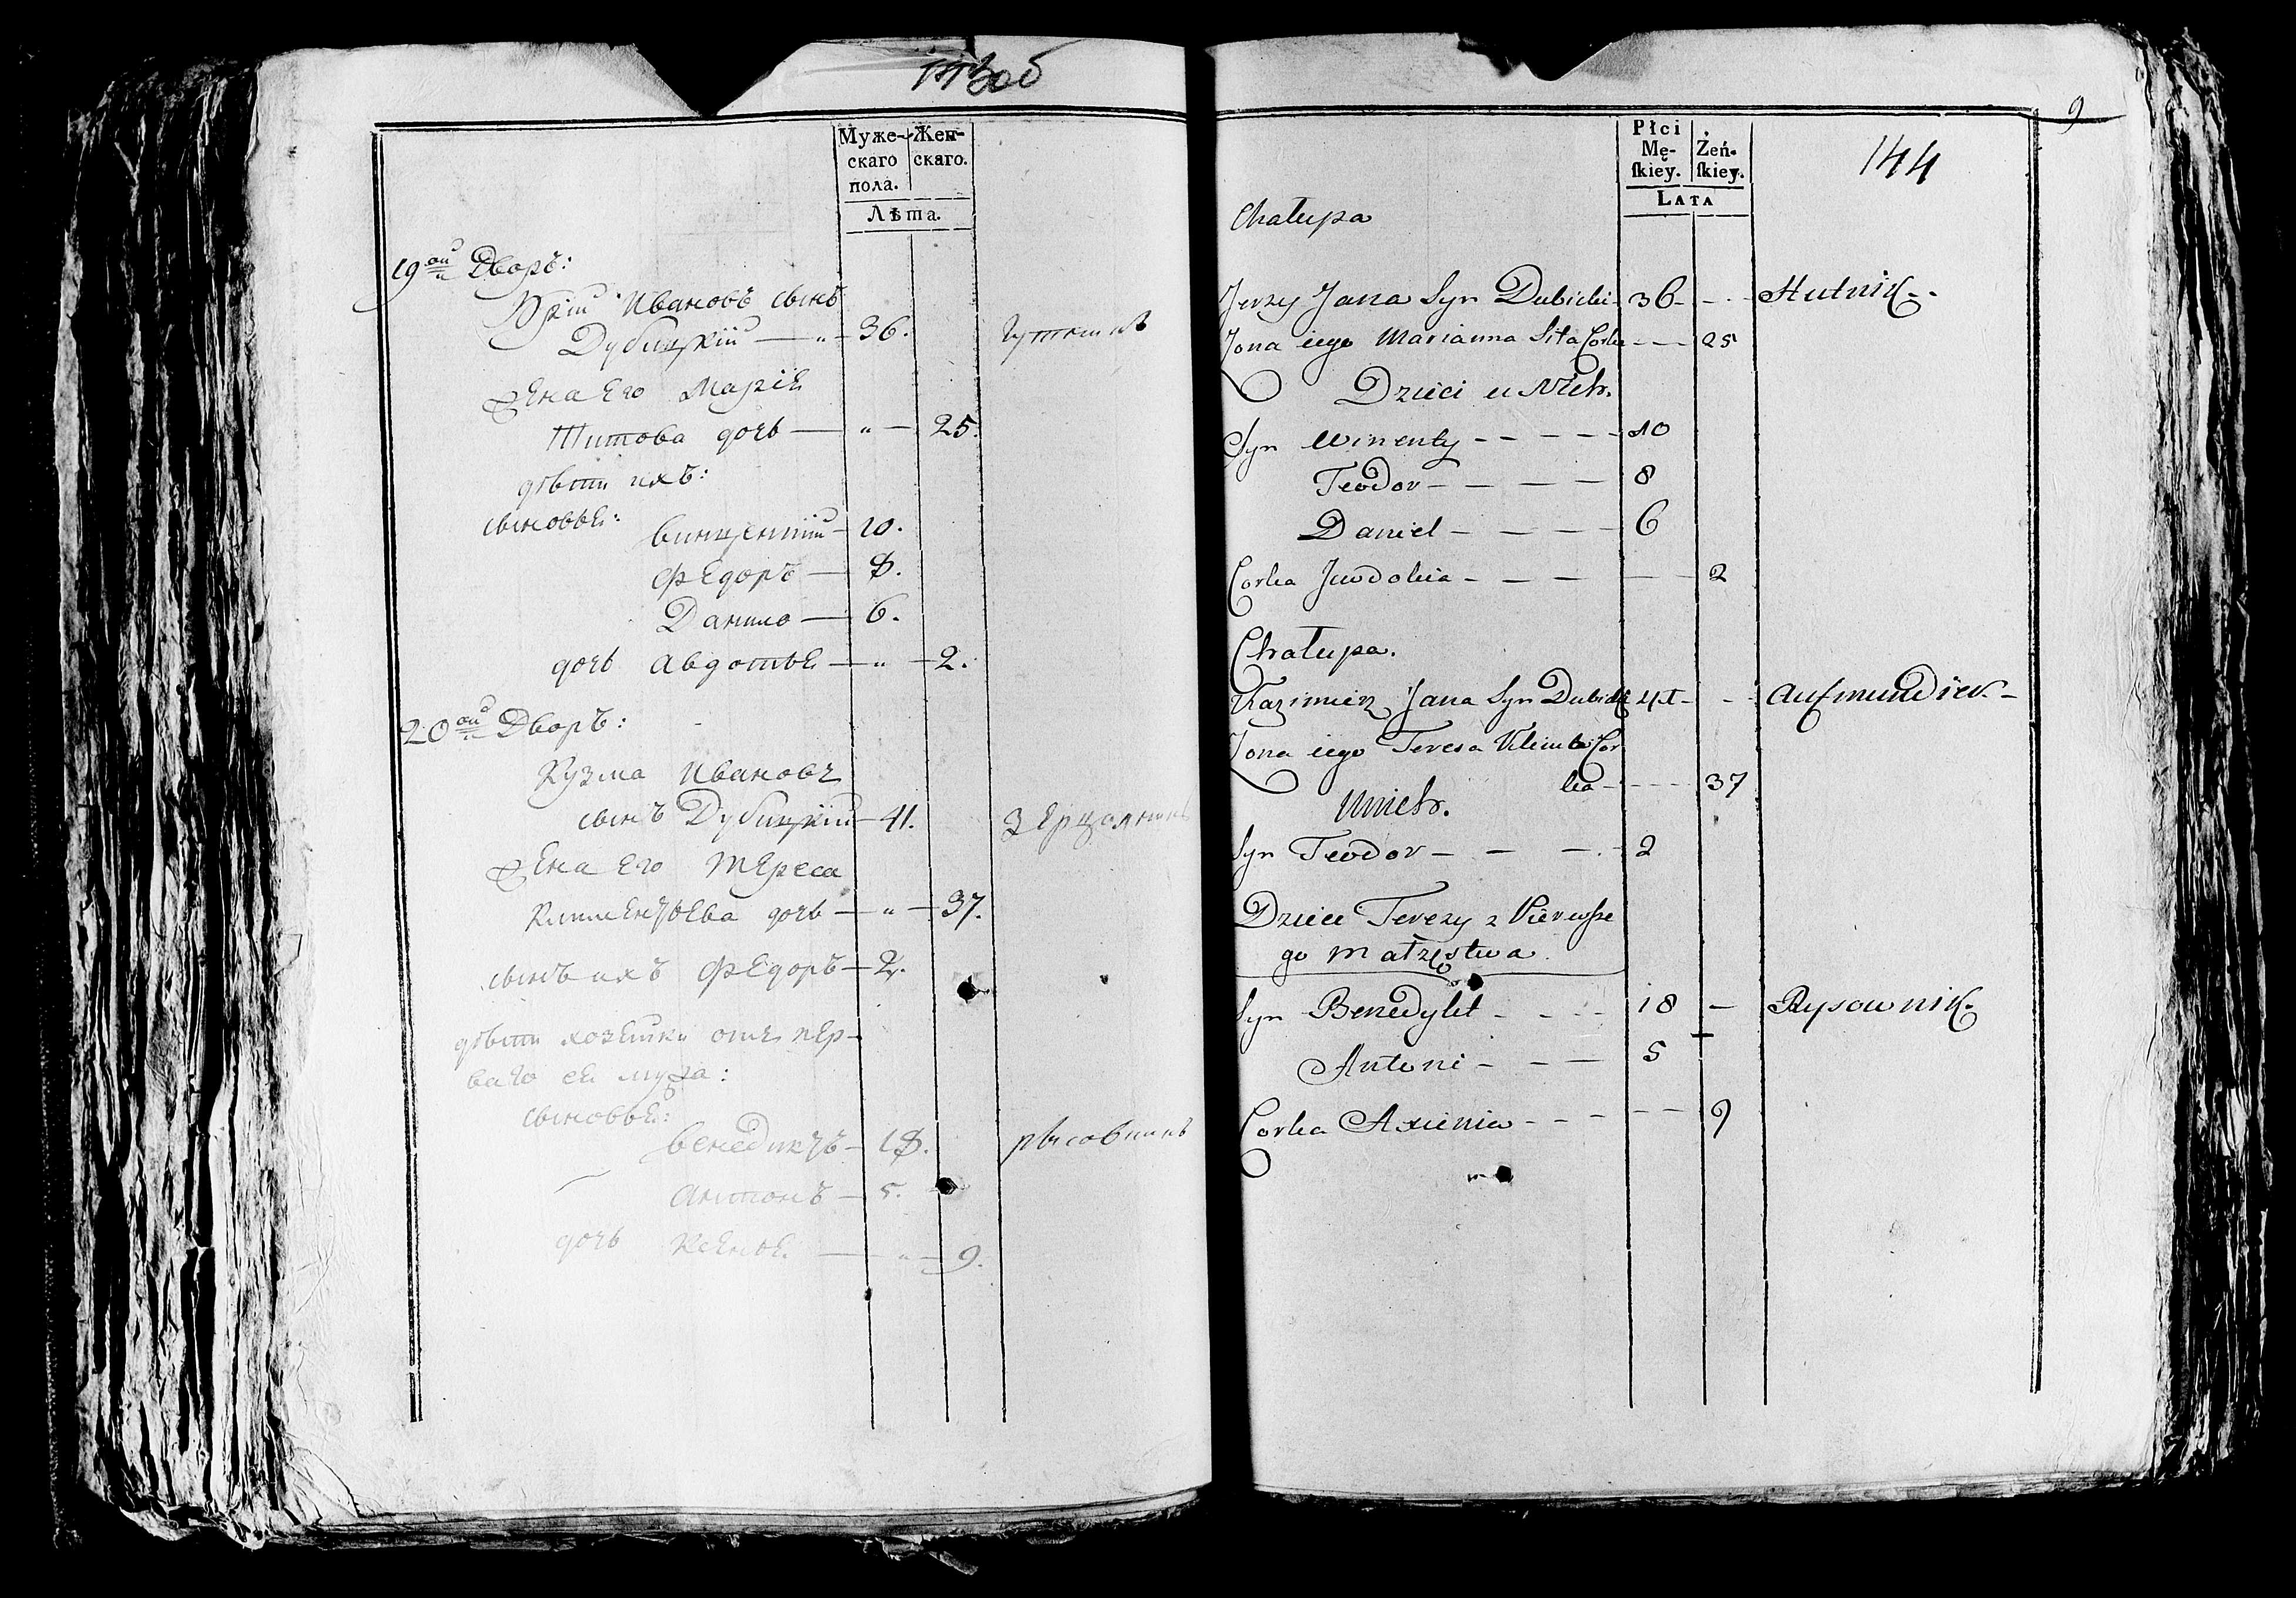 143 об
Муже-
скаго
пола.
Жен-
скаго.
Лѣта.
19ой Дворъ:
Юрiй Ивановъ сынъ
Дубицкiй — " — 36. гутникъ
жена Его Марiѣ
Титова дочь — " — 25.
дѣти ихъ:
сыновьѣ: Винцентiй — 10.
Федоръ — 8.
Данило — 6.
дочь Авдотьѣ — " — 2.
20ой Дворъ:
Кузма Ивановъ
сынъ Дубицкiй — 41.
жена Его Тереса
дочь — " — 37.
сынъ ихъ Федоръ — 2.
дѣти хозейки отъ пер-
ваго еѣ мужа:
сыновьѣ:
Венедиктъ — 18. рысовникъ
Антонъ — 5.
дочь Ксеньѣ — " — 9.
9
144
Płci
Mę-
ſkiey.
Żeń-
ſkiey.
LATA
Chałupa
Jerzy Jana Syn Dubicki - 36 - - - Hutnik -
Żona iego Marianna Tita Corka - - - 25
Dzieci u Nich.
Syn Winenty - - - - - 10
Teodor - - - - 8
Daniel - - - - 6
Corka Jewdokia - - - - - 2
Chałupa.
Kazimierz Jana Syn Dubicki 41 - - Aufmundier -
Żona iego Teresa Klimta Cor
ka - - - - 37
Unich.
Syn Teodor - - - - 2
Dziece Terezy z Pierwſze
go Małzęstwa
Syn Benedykt - - - - 18 - Rysownik
Antoni - - - 5
Corka Axienia - - - - - 9